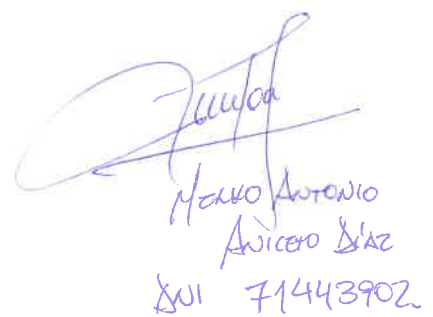 MENKO ANTONIO
ANICETO DÍAZ
DNI 71443902